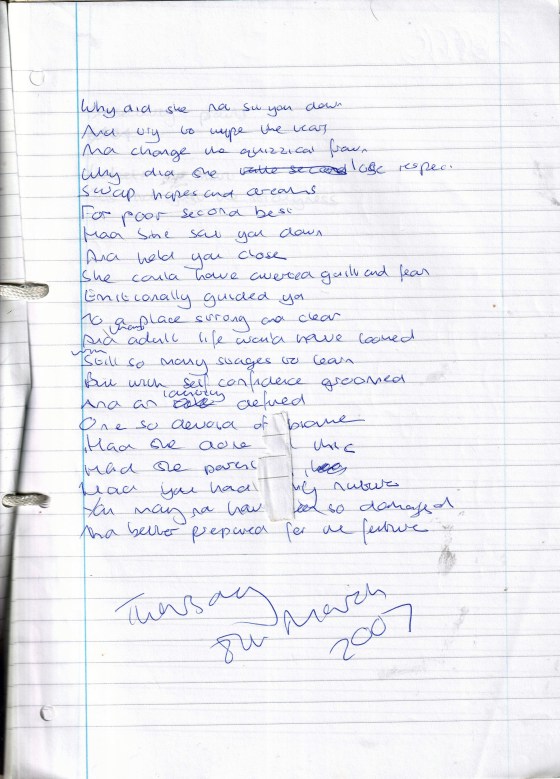 Why did she no sit you down
And try to wipe the tears
And change the quizzical frown
Why did she lose respect
Swap hopes and dreams
For poor second best
Had she sat you down
And held you close
She could have averted guilt and fear
Emitionally guided you
To a place strong and clear
And when adult life would have loomed
With still so many stages to learn
But with self confidence groomed
And an identity defined
One so devoid of blame
Had she done this
Had she
Had you had nurture
You may no have been so damaged
And better prepared for the future
Thursday
8th March
2007